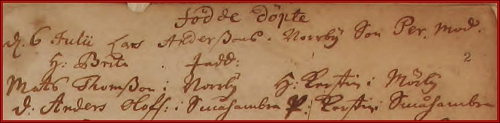 Födde döpte
d. 6 Julii Lars Anderßons i Norrby Son Per. mod.
H: Brita . fadd:
2
Mats Thomßon i Norrby H: Kerstin i Mörby
d: Anders Hoff: i Smuhambra H: Kerstin: Smuhambra